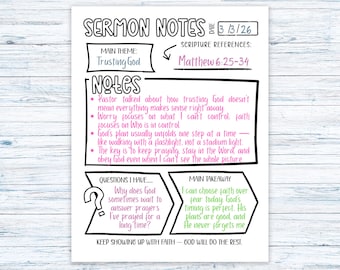 SERMON NOTES DATE 3/3/26
MAIN THEME:
Trusting God
SCRIPTURE REFERENCES:
Matthew 6:25-34
Notes
• Pastor talked about how trusting God doesn't
mean everything makes sense right away.
• Worry focuses on what I can't control, faith
focuses on Who is in control.
• God's plan usually unfolds one step at a time —
like walking with a flashlight, not a stadium light.
• The key is to keep praying, stay in the Word and
obey God even when I can't see the whole picture.
QUESTIONS I HAVE....
Why does God
sometimes want to
answer prayers
I've prayed for a
long time?
MAIN TAKEAWAY
I can choose faith over
fear today. God's
timing is perfect. His
plans are good, and
He never forgets me.
KEEP SHOWING UP WITH FAITH — GOD WILL DO THE REST.